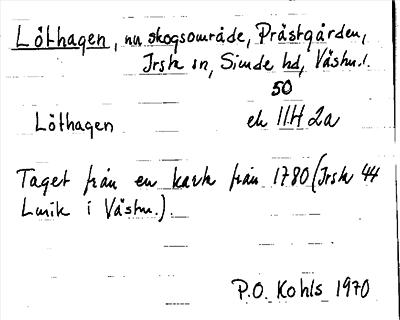 Löthagen, nu skogsområde, Prästgården,
Irsta sn, Siende hd, Västm.l.
50
Löthagen ek 11H 2a
Taget från en karta från 1780 (Irsta 44
Lmtk i Västm.).
P.O. Kohls 1970